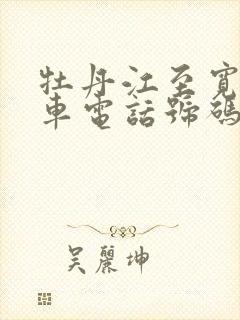 牡丹江至寬
車電話號碼
吳麗坤